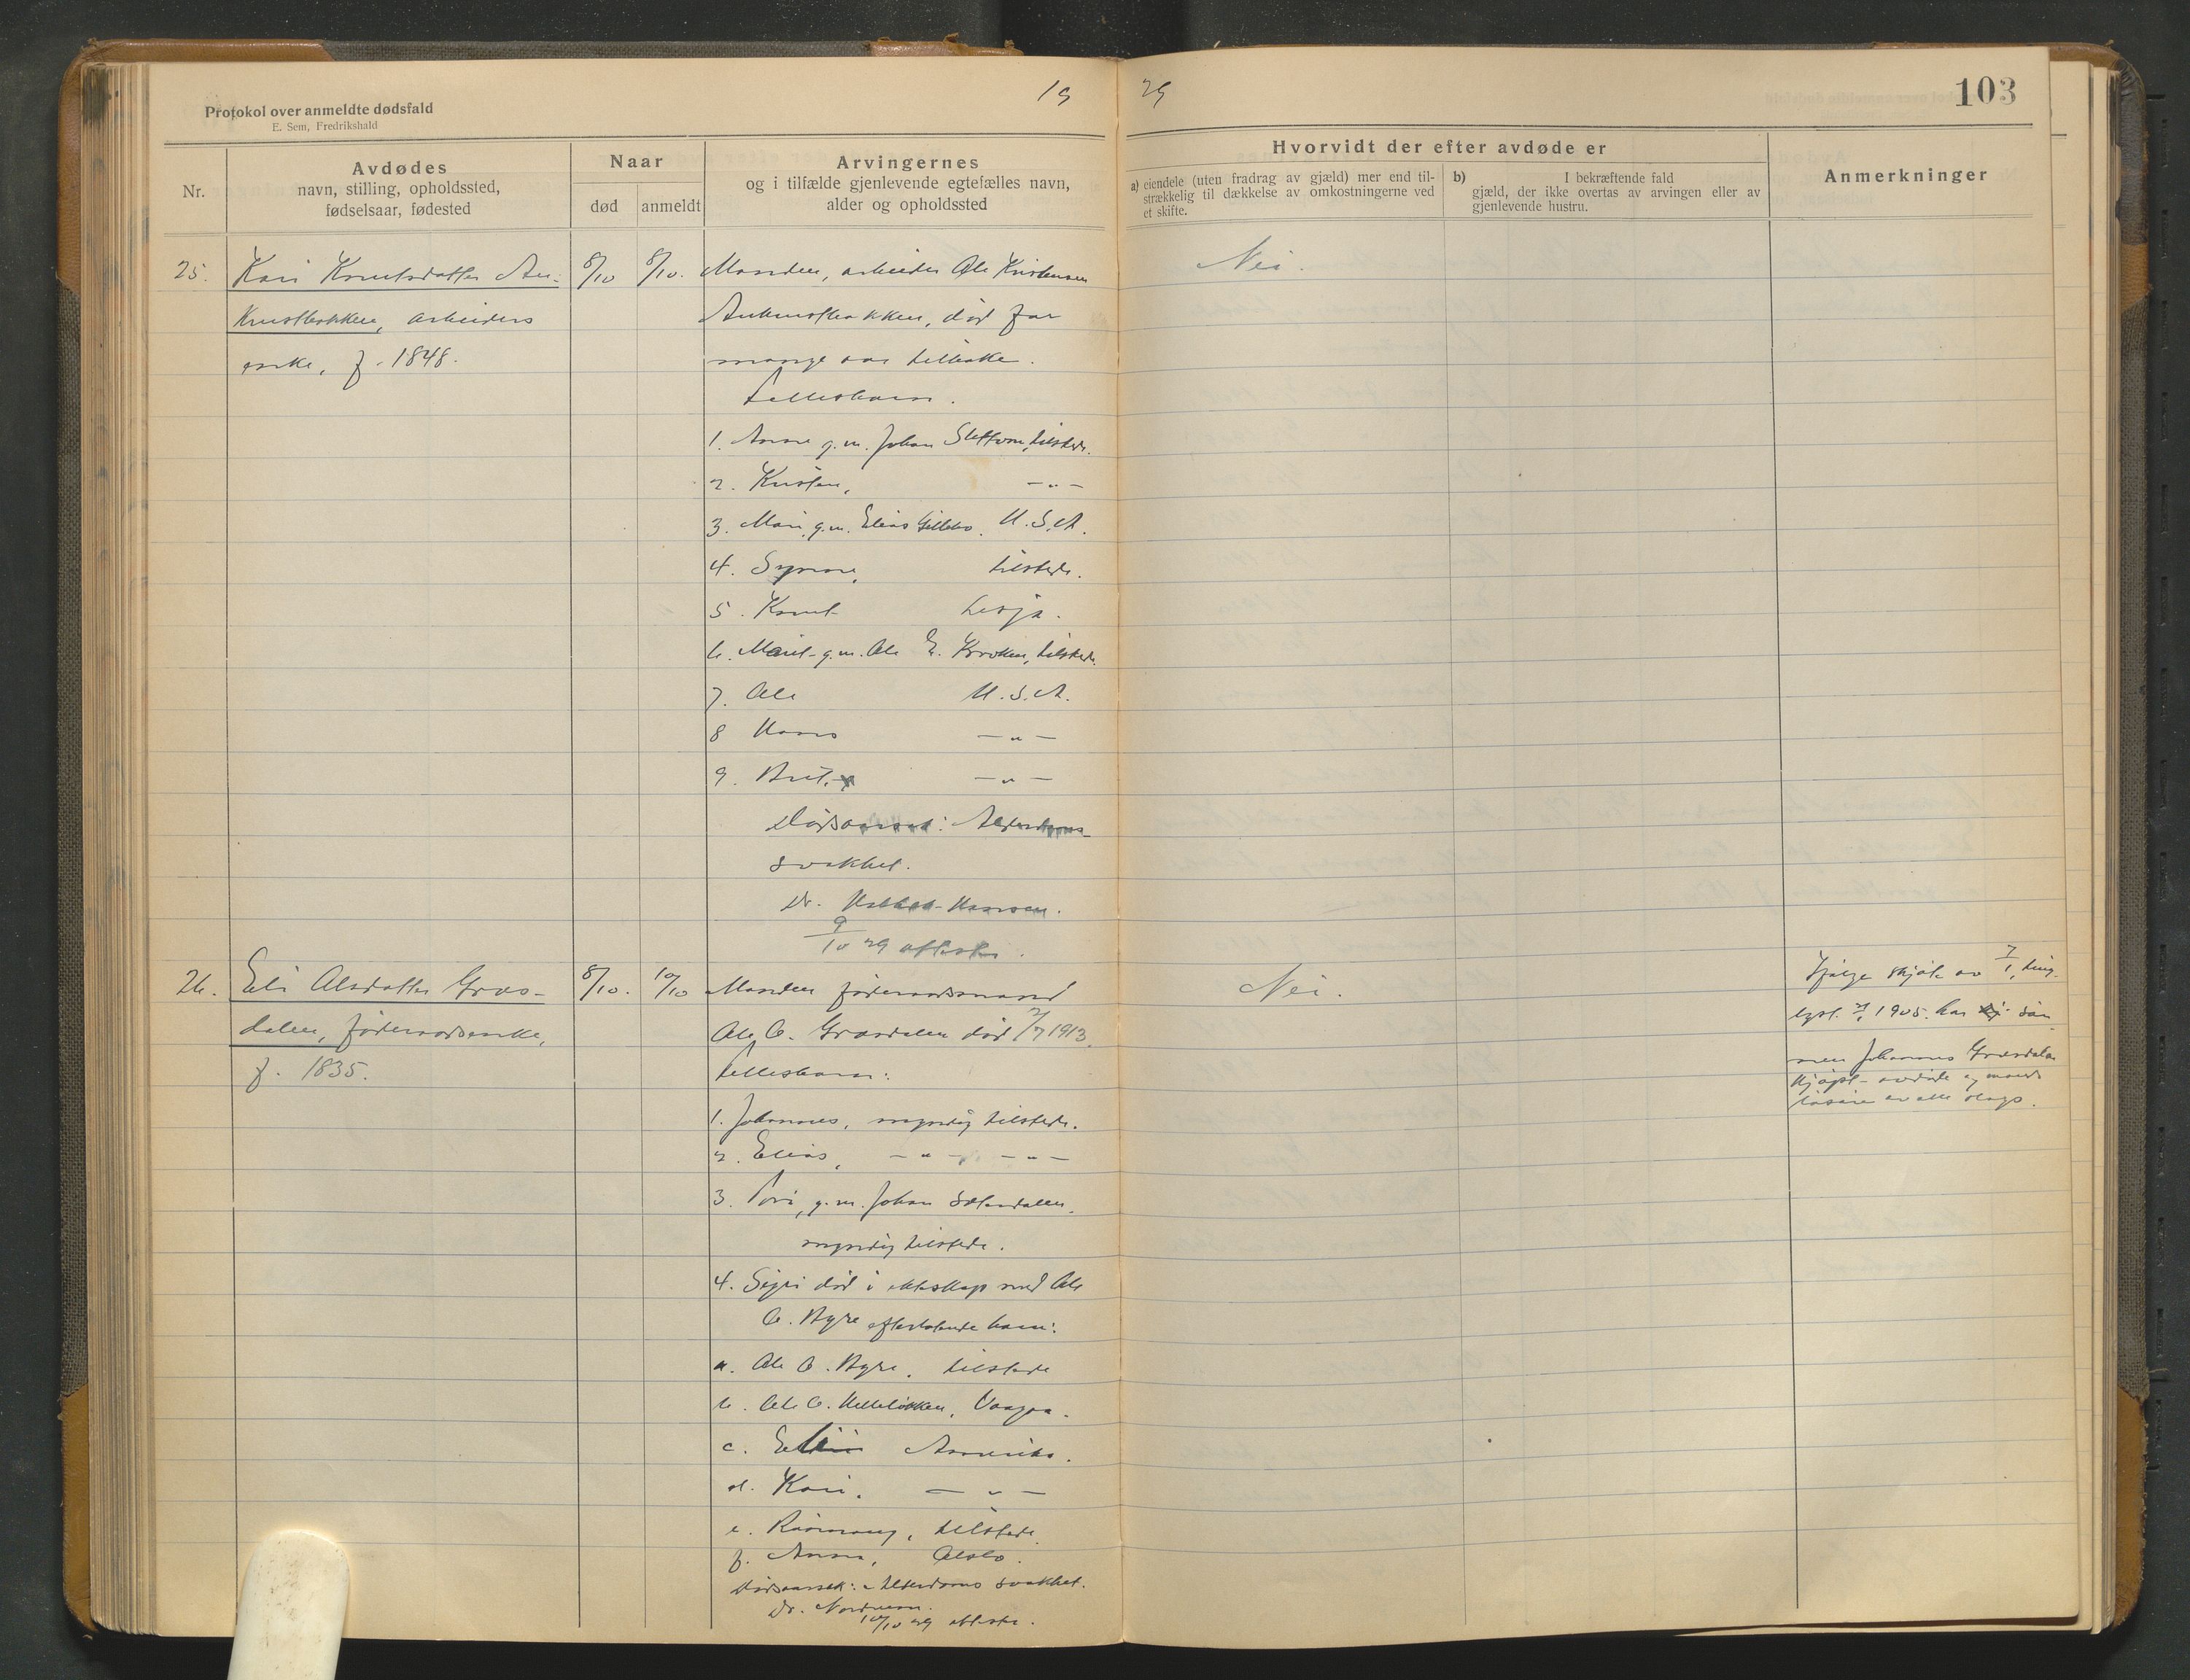 19
29
103
Protokol over anmeldte dødsfald
E. Sem, Fredrikshald
Nr.
Avdødes
navn, stilling, opholdssted,
fødselsaar, fødested
Naar
død
anmeldt
Arvingernes
og i tilfælde gjenlevende egtefælles navn,
alder og opholdssted
Hvorvidt der efter avdøde er
a) eiendele (uten fradrag av gjæld) mer end til-
strækkelig til dækkelse av omkostningerne ved
et skifte.
b) I bekræftende fald
gjæld, der ikke overtas av arvingen eller av
gjenlevende hustru.
Anmerkninger
25.
Kari Knutsdatter An-
knustbakken, arbeiders
enke, f. 1848.
8/10
8/10.
Manden, arbeider Ole Kristensen
Anknustbakken, død for
mange aar tilbake.
Fellesbarn.
1. Anne g.m. Johan Slettom, tilstede.
2. Kristen, -"-
3. Mari, g.m. Elias Gillebo. U.S.A.
4. Synne, tilstede.
5. Knut Lesja.
6. Marit g.m. Ole E. Kroken, tilstede.
7. Ole U.S.A.
8 Hans -"-
9. Brit. -"-
Dødsaarsak: Alderdoms-
svakhet.
Dr. Hansen.
9/10 29 attester.
Nei.
26.
Eli Olsdatter Græs-
dalen, føderaadsenke,
f. 1835.
8/10.
10/10
Manden føderaadsmand
Ole O. Græsdalen død 2/7 1913.
Fellesbarn:
1. Johannes, myndig tilstede.
2. Elias, -"- -"-
3. Tori, g.m. Johan
myndig tilstede.
4. Sigri død i ekteskap med Ole
O. Byre efterlatende barn:
a. Ole O. Byre, tilstede
b. Ole O. Vaagaa.
c. Eli Amerika.
d. Kari. -"-
e. Rønnaug, tilstede
f. Anna, Oslo.
Dødsaarsak: Alderdoms svakhet.
Dr.
10/10 29 attester.
Nei.
Ifølge skjøte av 7/1, ting-
lyst 1905. har søn-
nen Johannes Græsdalen
kjøpt avdøde og mands
løsøre av alle slags.